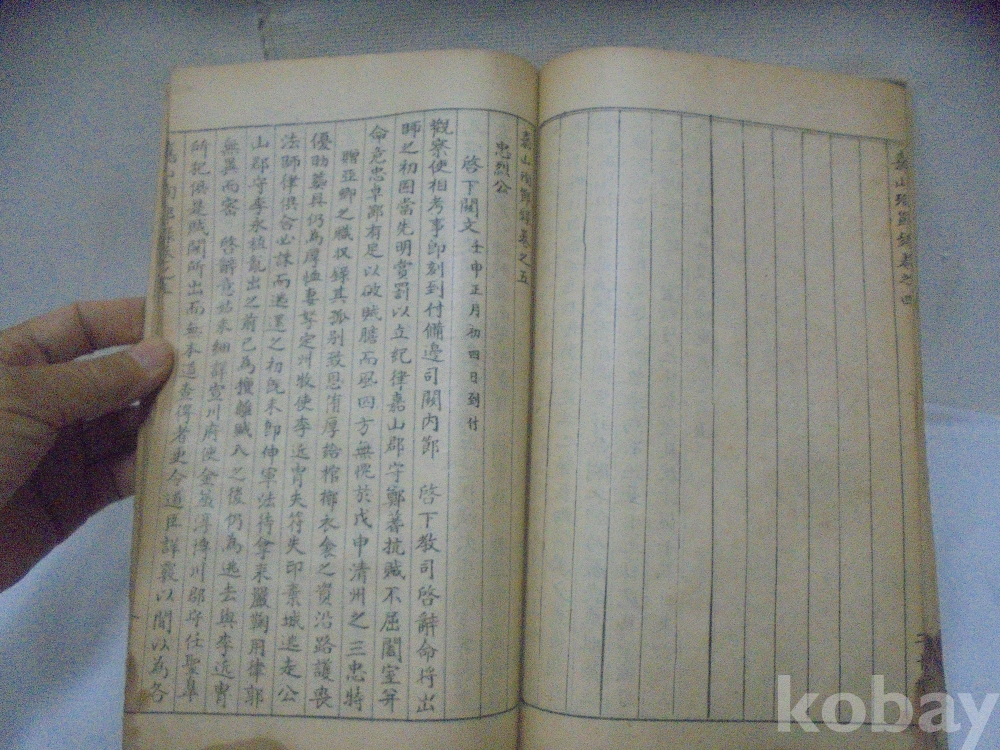 嘉山殉節錄卷之四
嘉山殉節錄卷之五
忠烈公
啓下關文 壬申正月初四日到付
觀察使相考事卽刻到付備邊司關內節 啓下敎司啓辭命將出
師之初固當先明賞罰以立紀律嘉山郡守鄭蓍抗賊不屈闔室幷
命危忠卓節有足以破賊膽而風四方無愧於戊申淸州之三忠特
贈亞卿之職收錄其孤別致恩侑厚給棺槨衣衾之資沿路護喪
優助葬具仍爲厚恤妻孥定州牧使李近冑失符失印棄城逃走公
法師律俱合必誅而逃還之初旣未卽伸軍法待拿來嚴鞫用律郭
山郡守李永植亂出之前已爲擅離賊入之後仍爲逃去與李近冑
無異而審 啓辭意若未細詳宣川府使金益淳博川郡守任聖皐
所犯俱是賊關所出而無本道查得者更令道臣詳覈以聞以爲各
kobay